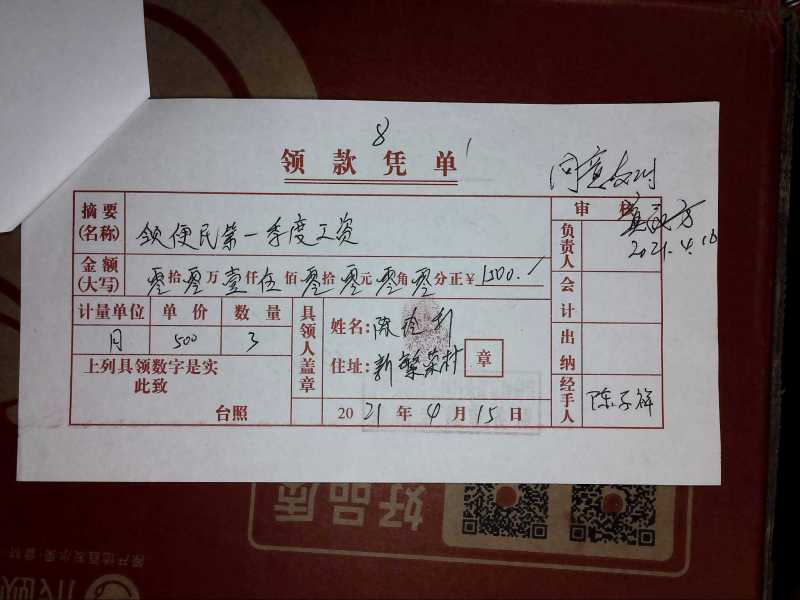 8
领款凭单
同意
审 核
摘要(名称) 领便民第一季度工资
2021.4.16
金额(大写) 零拾零万壹仟伍佰零拾零元零角零分正¥1500.
计量单位 单价 数量
月 500 3
上列具领数字是实
此致
台照
具领人盖章
姓名: 陈
住址: 新繁荣村
章
2021年4月15日
负责人
会计
出纳
经手人 陈子祥
好品质